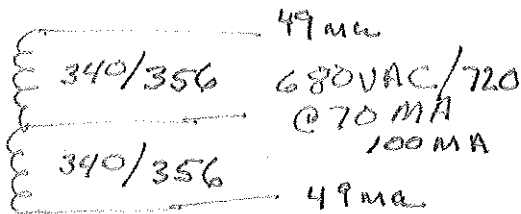 49 ma
340/356 680VAC/720
@70 MA
100 MA
340/356
49 ma